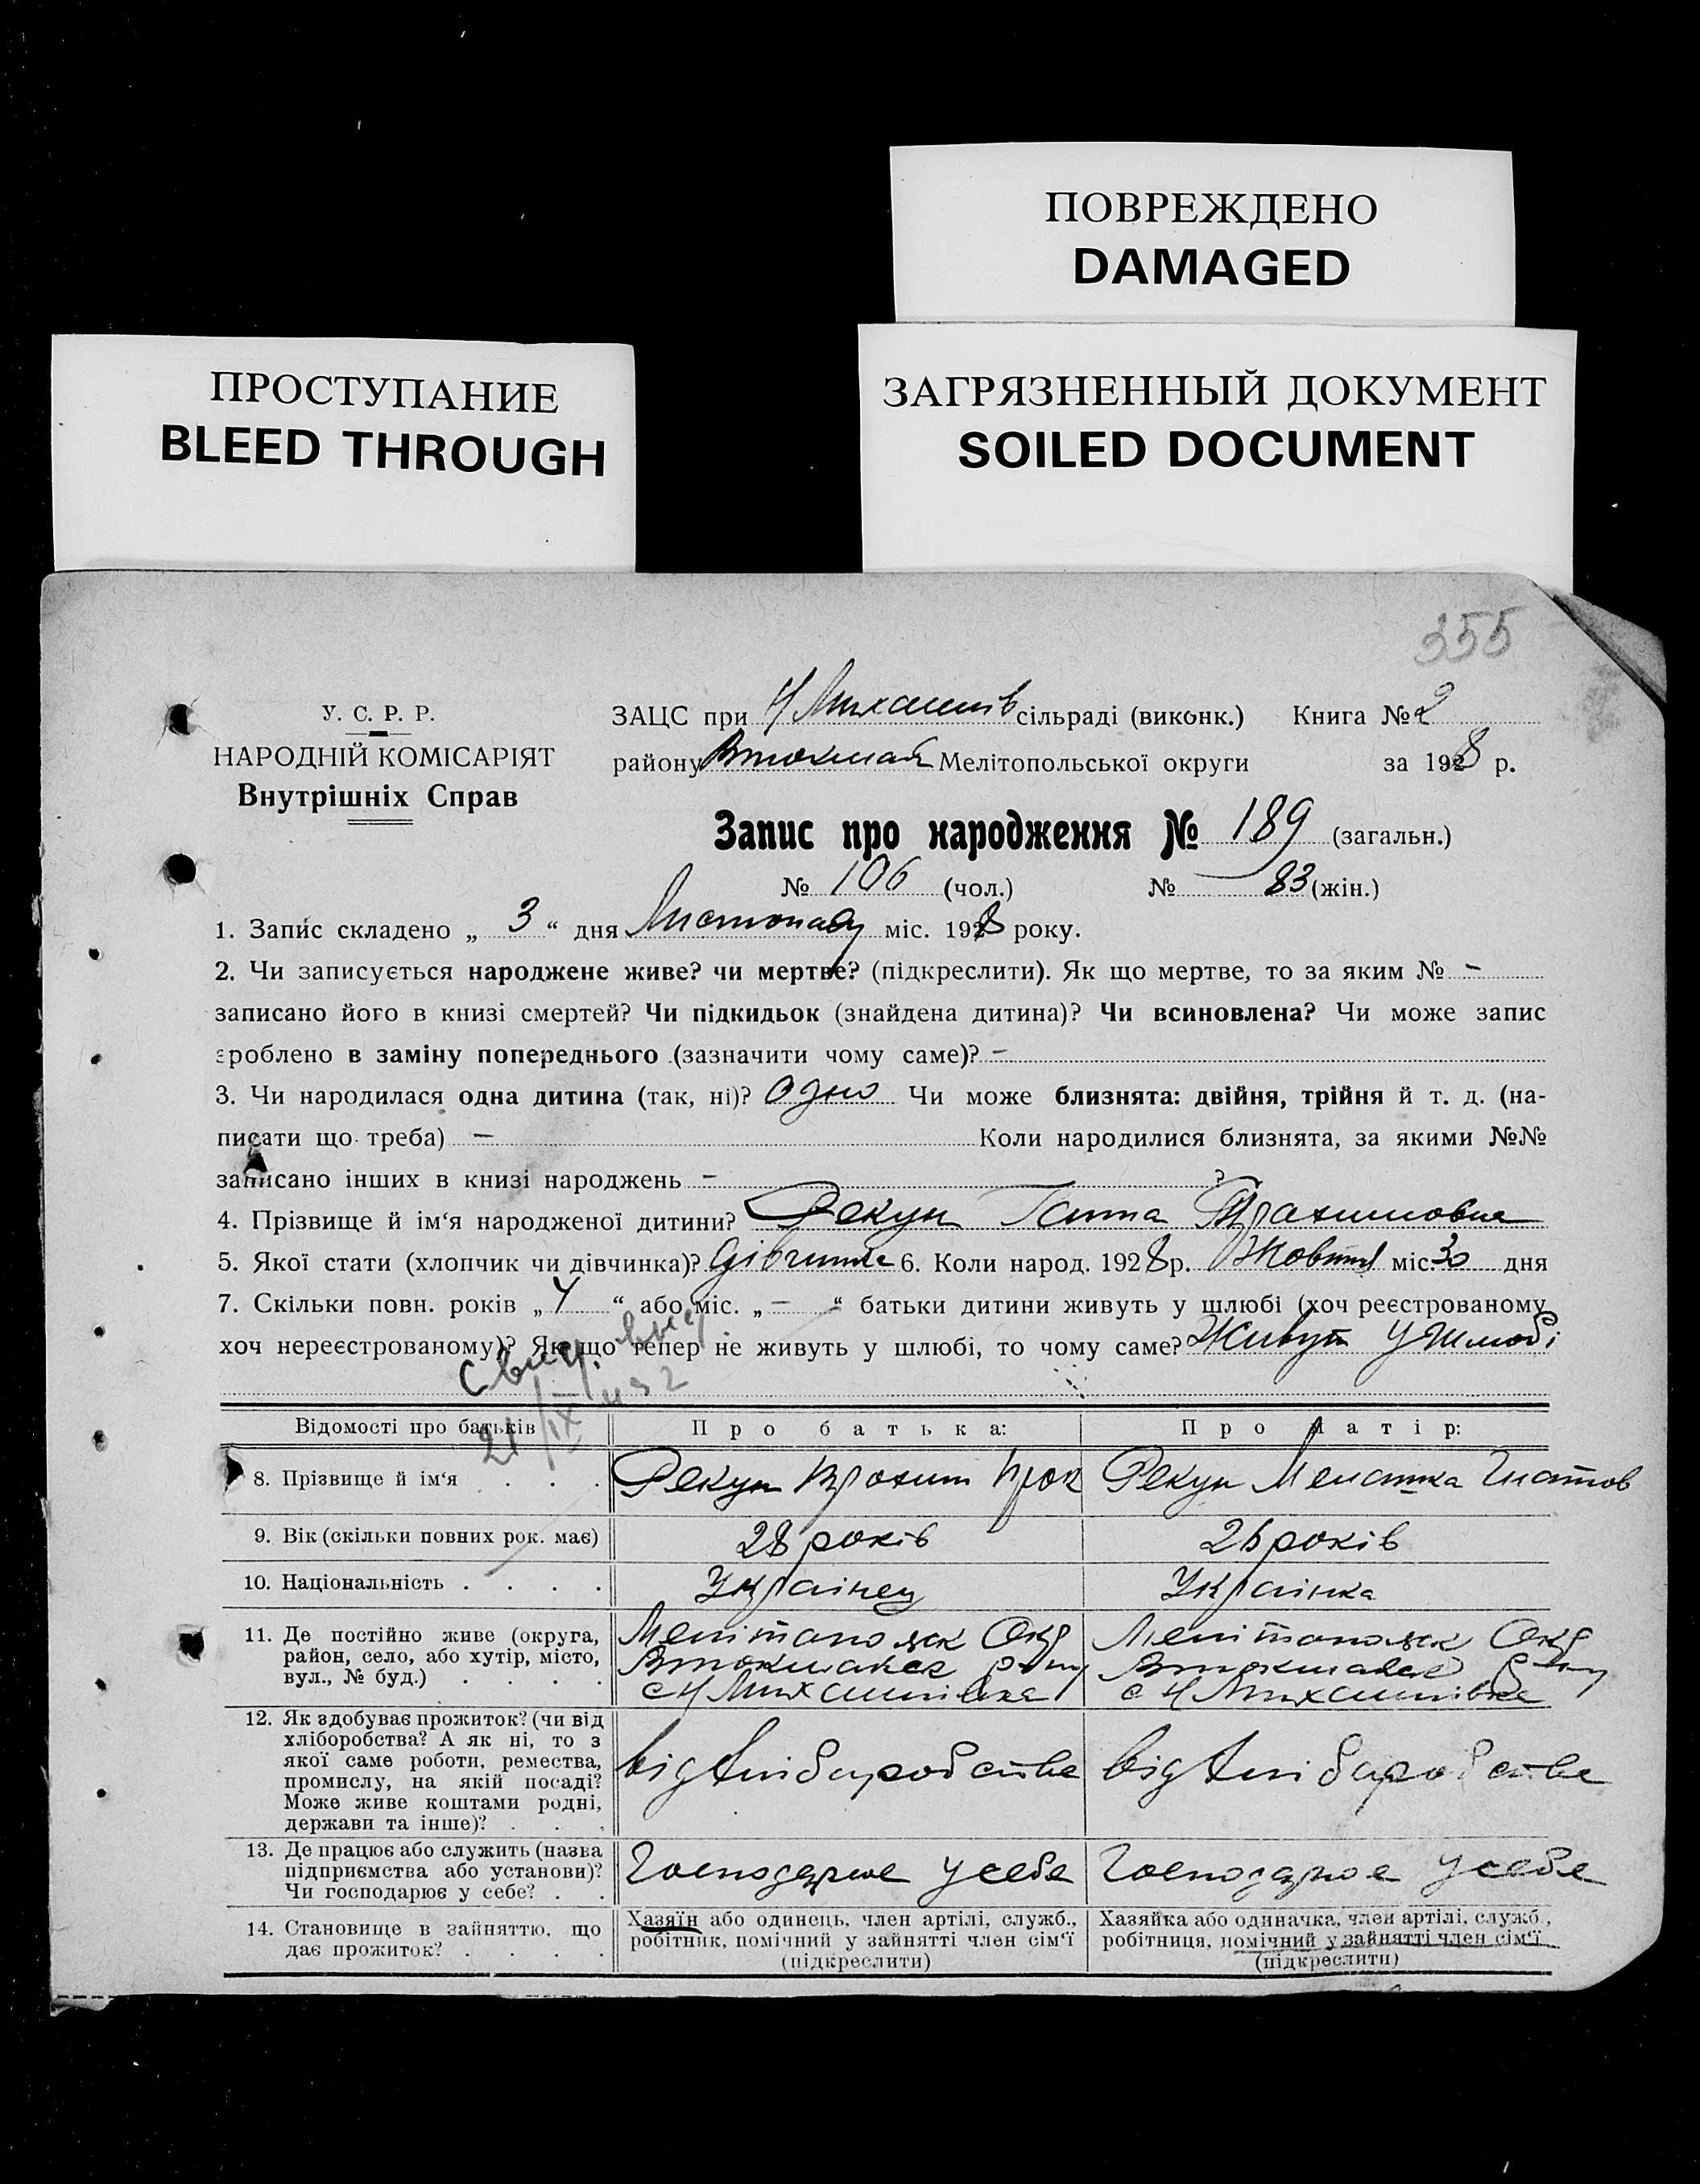 ПОВРЕЖДЕНО
DAMAGED
ПРОСТУПАНИЕ
BLEED THROUGH
ЗАГРЯЗНЕННЫЙ ДОКУМЕНТ
SOILED DOCUMENT
355
У. С. Р. Р.
НАРОДНІЙ КОМІСАРІЯТ
Внутрішніх Справ
ЗАЦС при сільраді (виконк.) Книга № 2
району Мелітопольської округи за 1928 р.
Запис про народження № 189 (загальн.)
№ 106 (чол.) № 83 (жін.)
1. Запис складено „ 3 “ дня Листопаду міс. 1928 року.
2. Чи записується народжене живе? чи мертве? (підкреслити). Як що мертве, то за яким № -
записано його в книзі смертей? Чи підкидьок (знайдена дитина)? Чи всиновлена? Чи може запис
зроблено в заміну попереднього (зазначити чому саме)? -
3. Чи народилася одна дитина (так, ні)? Одно Чи може близнята: двійня, трійня й т. д. (на-
писати що треба) - Коли народилися близнята, за якими №№
записано інших в книзі народжень - ?
4. Прізвище й ім‘я народженої дитини? Рекун Ганна
5. Якої стати (хлопчик чи дівчинка)? дівчинка 6. Коли народ. 1928 р. Жовтня міс. 30 дня
7. Скільки повн. років „ “ або міс. „ - “ батьки дитини живуть у шлюбі (хоч реєстрованому
хоч нереєстрованому)? Як що тепер не живуть у шлюбі, то чому саме? Живут у шлюбі
21/IX 432
Відомості про батьків Про батька: Про матір:
8. Прізвище й ім‘я . . . Рекун Рекун
9. Вік (скільки повних рок. має) 28 років 26 років
10. Національність . . . . Украінец Украінка
11. Де постійно живе (округа,
район, село, або хутір, місто,
вул., № буд.) . . . .
12. Як здобуває прожиток? (чи від
хліборобства? А як ні, то з
якої саме роботи, ремества,
промислу, на якій посаді?
Може живе коштами родні,
держави та інше)? . . .
від хліборобства від хліборобства
13. Де працює або служить (назва
підприємства або установи)?
Чи господарює у себе? . .
Господарює у себе Господарює у себе
14. Становище в зайняттю, що
дає прожиток? . . . .
Хазяїн або одинець, член артілі, служб.,
робітник, помічний у зайнятті член сім‘ї
(підкреслити)
Хазяйка або одиначка, член артілі, служб.,
робітниця, помічний у зайнятті член сім‘ї
(підкреслити)